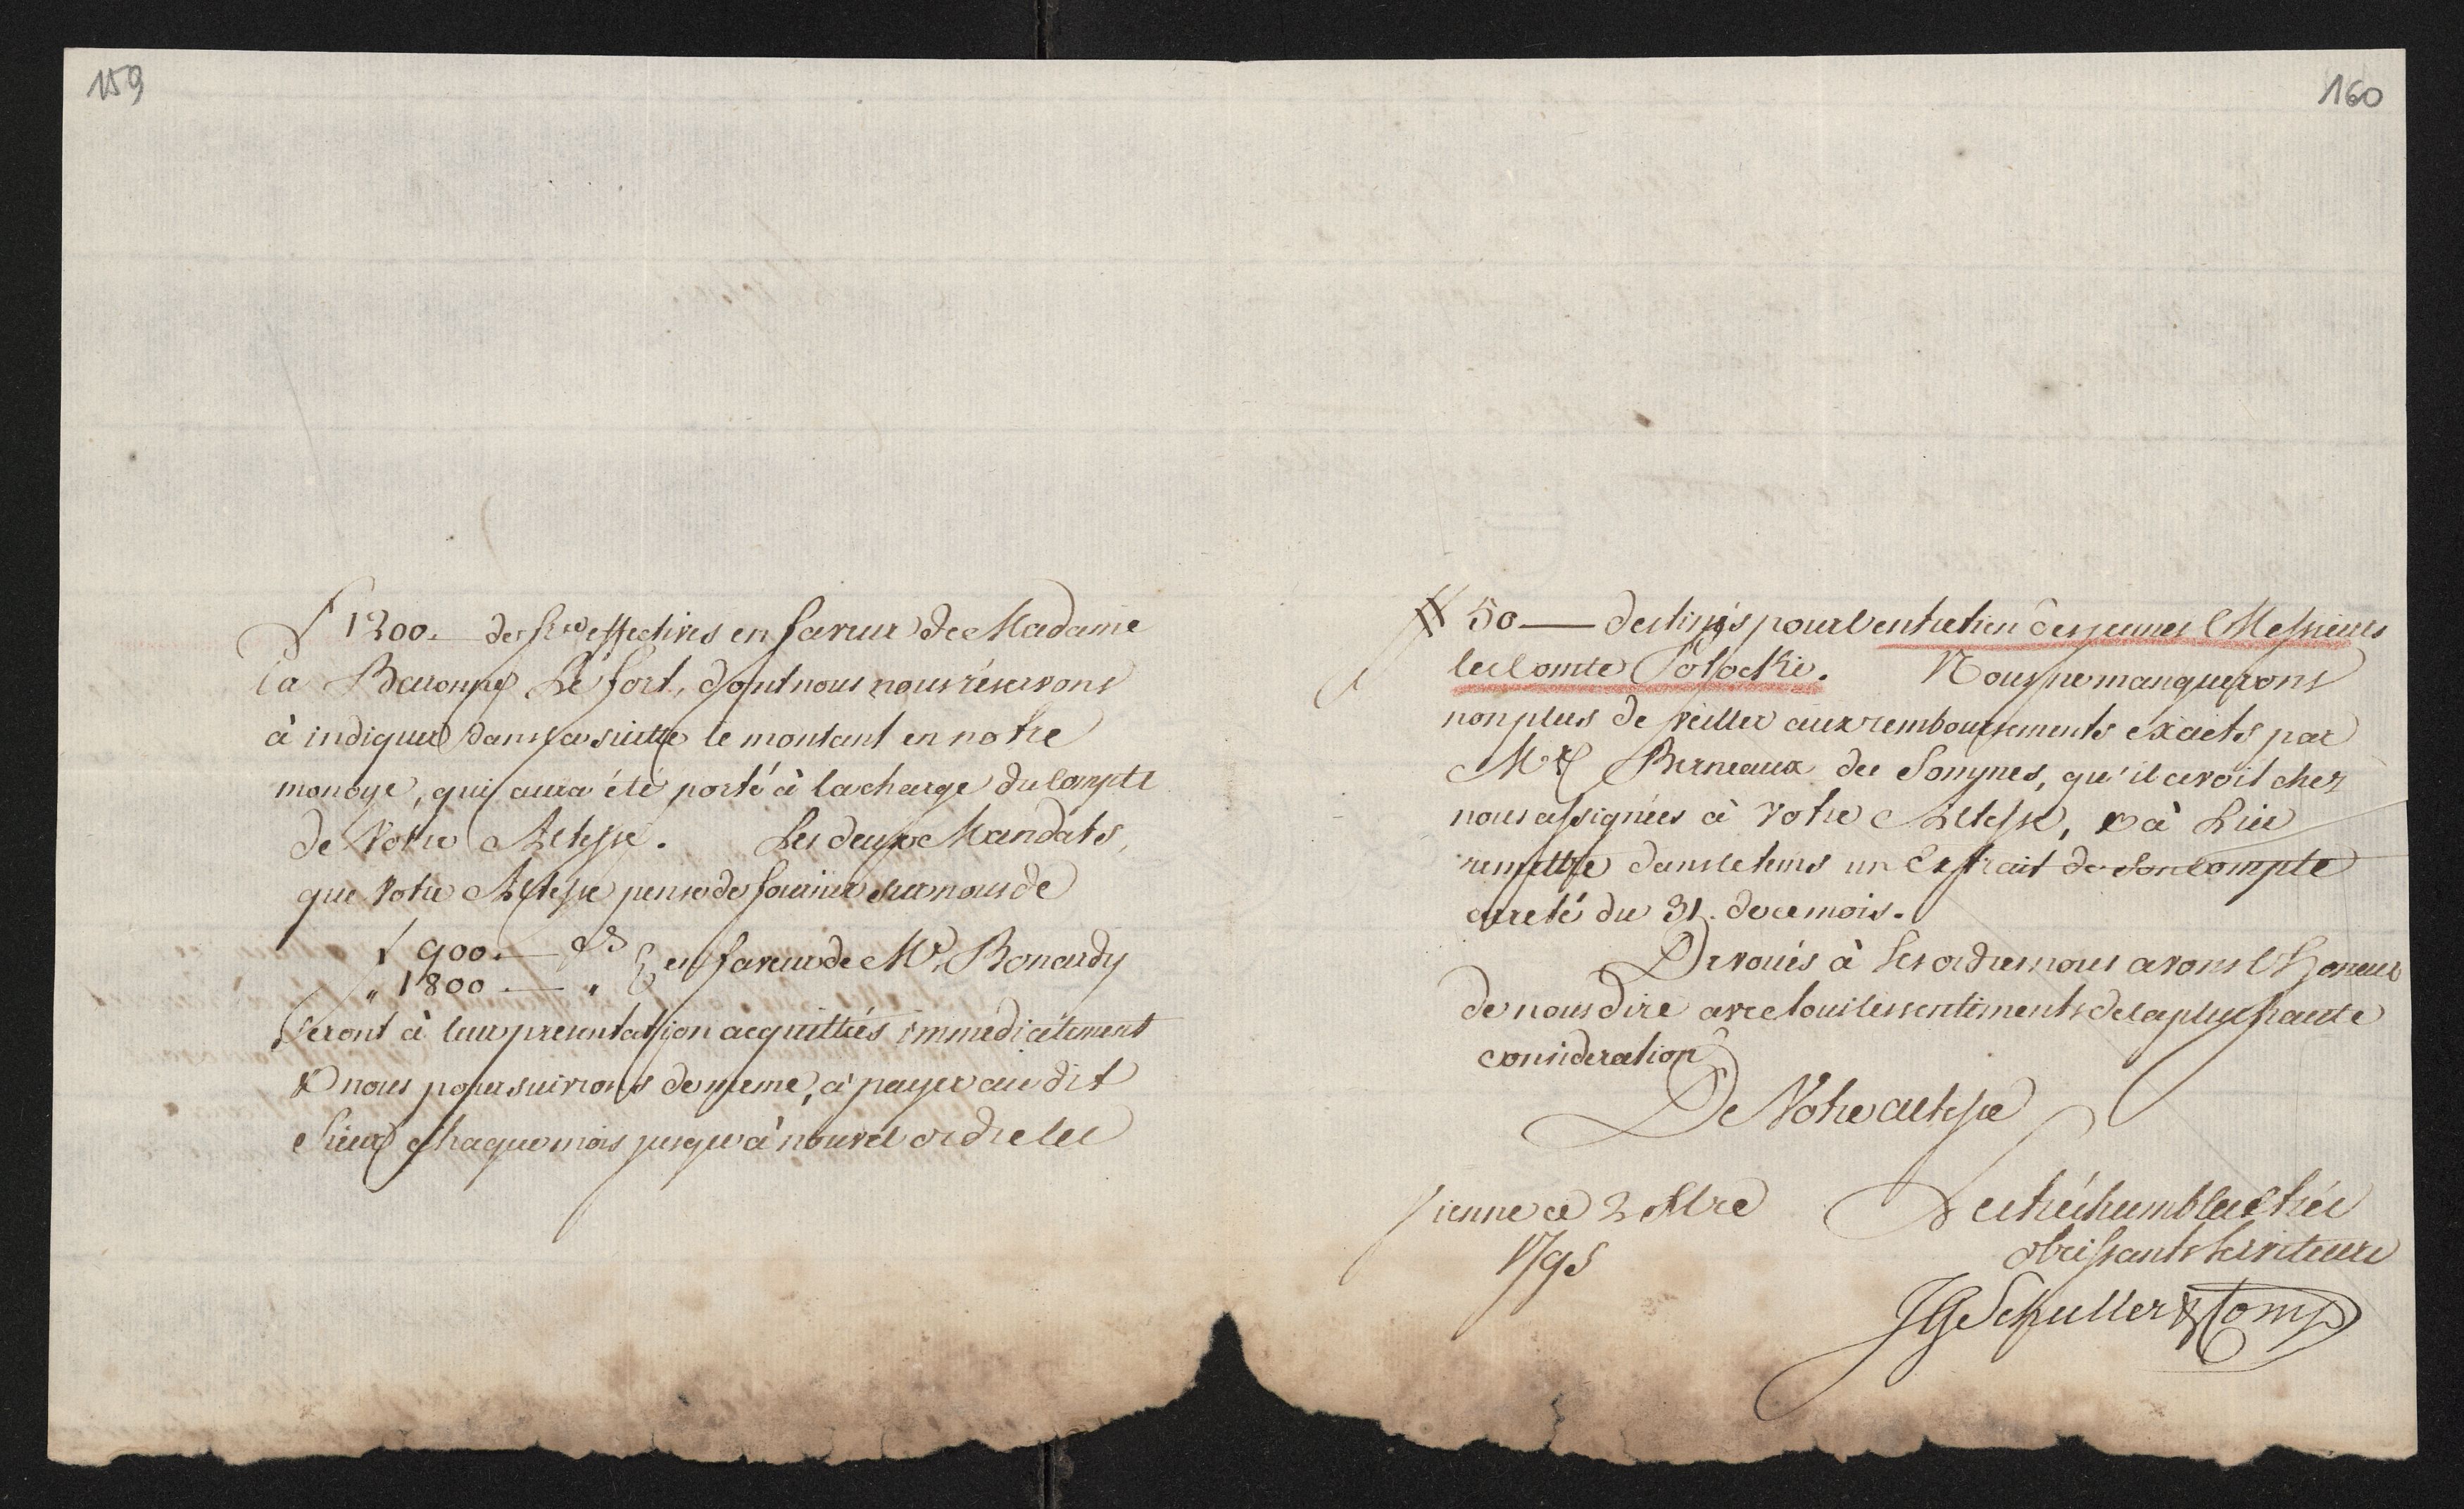 159
f 1200.— des frcs effectives en faveur de Madame
la Baronne Le fort, dont nous nous réservons
à indiquer dans la suitte le montant en notre
monoye, qui aura été porté à la charge du Compte
de Votre Altesse. Les deux Mandats,
que Votre Altesse pense de fournir sur nous de
f 900.—
" 1800.— " en faveur de Mr. Bonardy
seront à leur presentation acquittés immediatement
& nous poursuivrons de meme, à payer au dit
Sieur chaque mois jusqu'à nouvel ordre les
160
# 50— destinés pour l'entretien des jeunes Messieurs
les Comte Potockie. Nous ne manquerons
non plus de veiller aux remboursements exacts par
Mr. Berneaux des Somynes, qu'il avoit chez
nous assignées à Votre Altesse, & à Lui
remettre dans le tems un Extrait de son Compte
arreté du 31. de ce mois.
Devoués à ses ordres nous avons l'Honeur
de nous dire avec tous les sentiments de la plus haute
consideration
De Votre altesse
Vienne ce 2 Xbre
1795
Les très humbles & très
obeissants serviteurs
JG Schuller & Comp